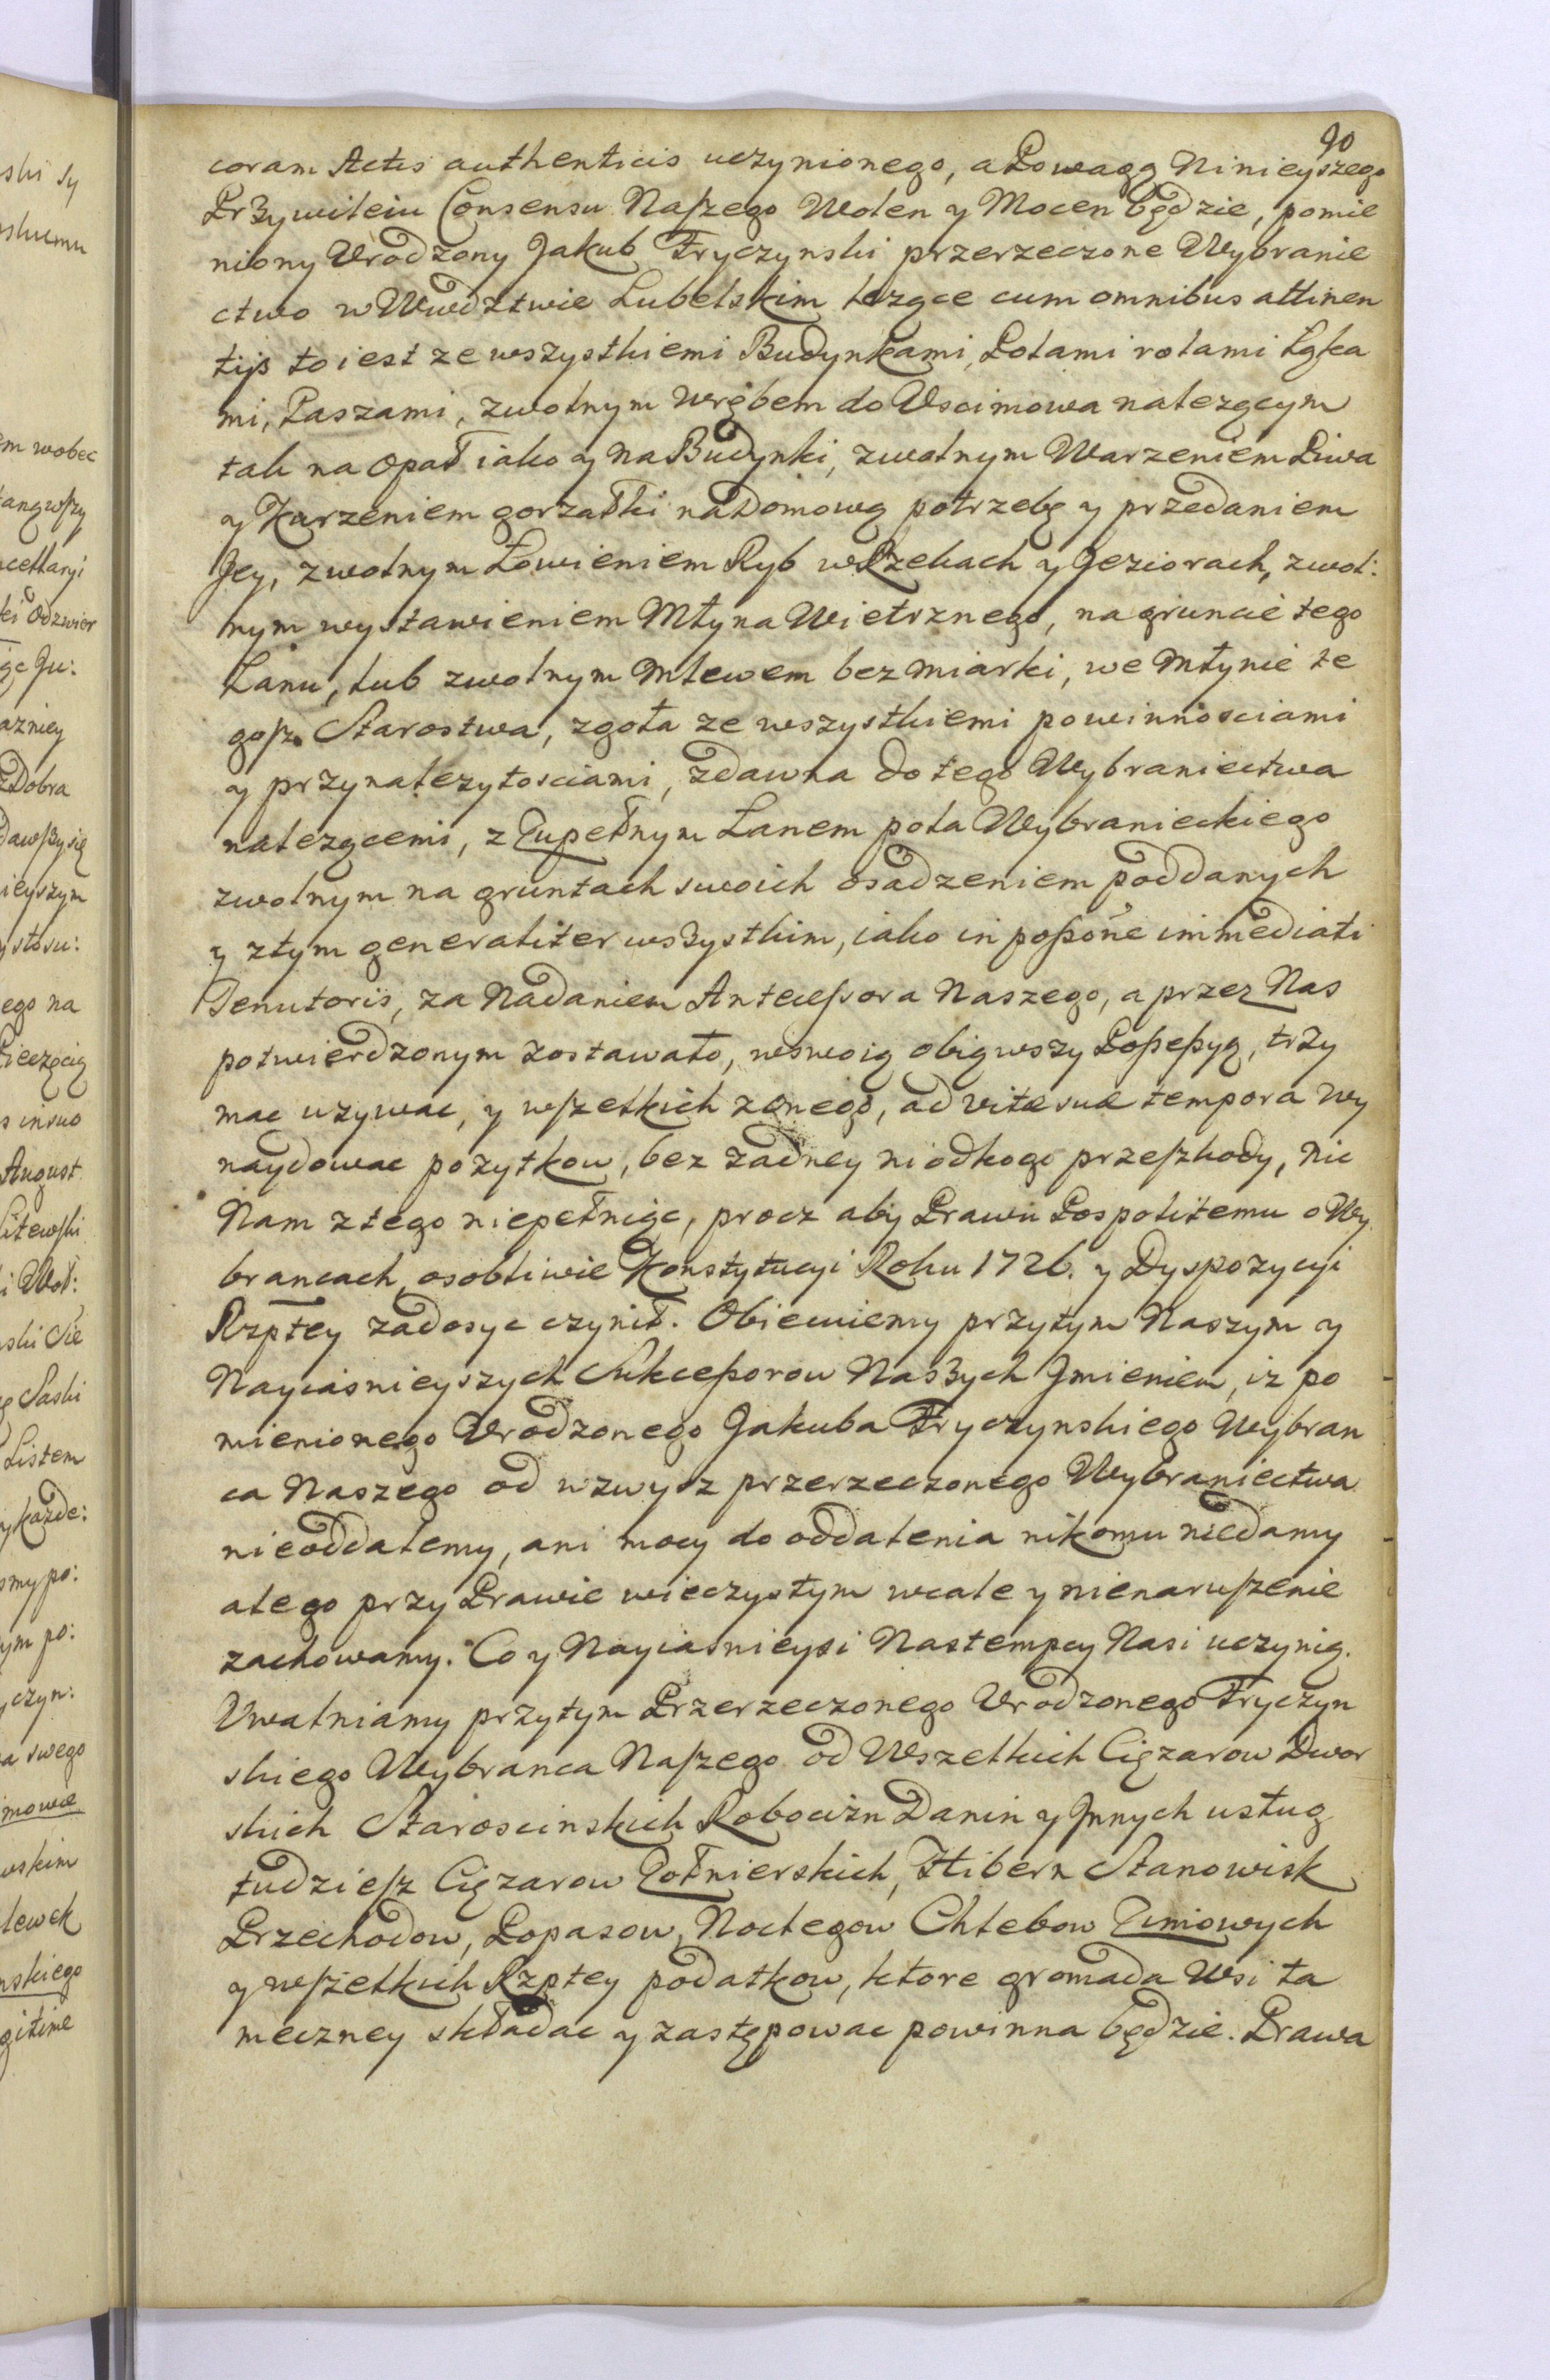 90
coram Actis authenticis uczynionego, a Powagą Ninieyszego
Przywileiu Consensu Naszego Wolen y Mocen będzie, pomie
niony Urodzony Jakub Fryczynski przerzeczone Wybranie
ctwo w Wwdztwie Lubelskim lezące cum omnibus attinen
tijs to iest ze wszystkiemi Budynkami, Polami rolami łąka
mi, Paszami, zwolnym wrębem do Uscimowa nalezącym
tak na opał iako y na Budynki, zwolnym Warzeniem Piwa
y Kurzeniem gorzałki na Domową potrzebę y przedaniem
Jey, zwolnym Łowieniem Ryb w Rzekach y Jeziorach, zwol:
nym wystawieniem Młyna Wietrznego, na gruncie tego
Łanu, lub zwolnym mlewem bez miarki, we Młynie te
gosz Starostwa, zgoła ze wszystkiemi powinnosciami
y przynalezytosciami, zdawna do tego Wybraniectwa
nalezącemi, z Zupełnym Łanem pola Wybranieckiego
zwolnym na gruntach swoich osadzeniem poddanych
y ztym generaliter wszystkim, iako in possone immediati
Tenutoris, za Nadaniem Antecessora Naszego, a przez Nas
potwierdzonym zostawało, w swoią obiąwszy Possessyą, trzy
mac uzywac, y wszelkich z onego, ad vitae suae tempora wy
naydowac pozytkow, bez zadney ni odkogo przeszkody, nic
Nam z tego niepełniąc, procz aby Prawu Pospolitemu o Wy
brancach, osobliwie Konstytucyi Roku 1726. y Dyspozycyi
Rzptey zadosyc czynił. Obiecuiemy przytym Naszym y
Nayiasnieyszych Sukcessorow Naszych Jmieniem, iz po
mienionego Urodzonego Jakuba Fryczynskiego Wybran
ca Naszego od wzwysz przerzeczonego Wybraniectwa
nieoddalemy, ani mocy do oddalenia nikomu niedamy
ale go przy Prawie wieczystym wcale y nienaruszenie
zachowamy. Co y Nayiasnieysi Nastempcy Nasi uczynią.
Uwalniamy przytym Przerzeczonego Urodzonego Fryczyn
skiego Wybranca Naszego od Wszelkich Cięzarow Dwor
skich Staroscinskich Robocizn Danin y Jnnych usług
tudziesz Cięzarow Zołnierskich, Hibern Stanowisk
Przechodow, Popasow, Noclegow Chlebow Zimowych
y wszelkich Rzptey podatkow, ktore gromada Wsi ta
meczney składac y zastępowac powinna będzie. Prawa